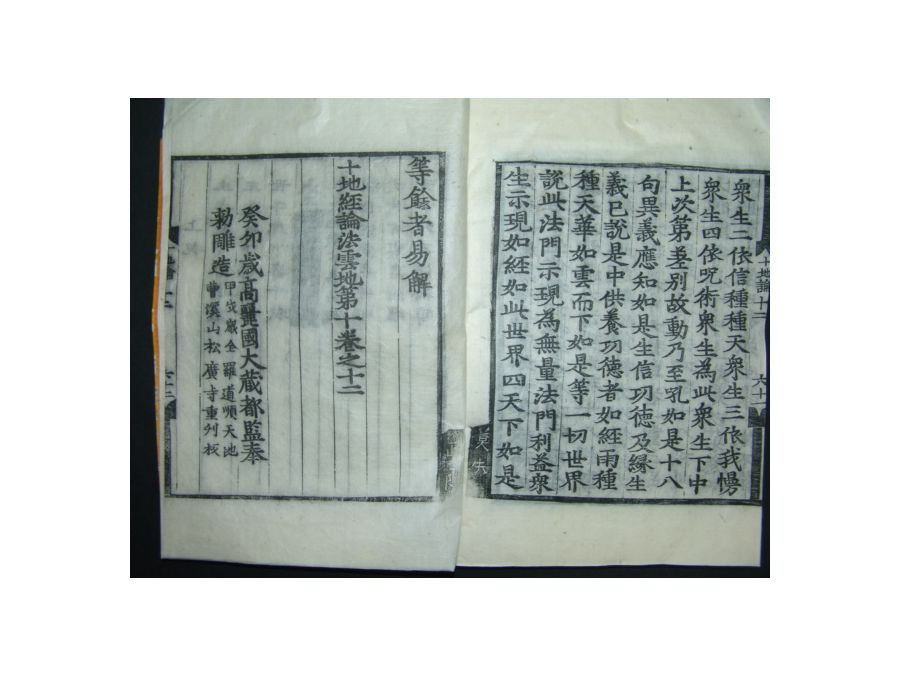 衆生二依信種種天衆生三依我慢
衆生四依呪術衆生為此衆生下中
上次第差別故動乃至吼如是十八
句異義應知如是生信功德及縁生
義已說是中供養功德者如經雨種
種天華如雲而下如是等一切世界
說此法門示現為無量法門利益衆
生示現如經如此世界四天下如是
十地論十二 六十一
等餘者易解
十地經論法雲地第十卷之十二
癸卯歲高麗國大藏都監奉
勅雕造
甲戌歲全羅道順天地
曹溪山松廣寺重刋板